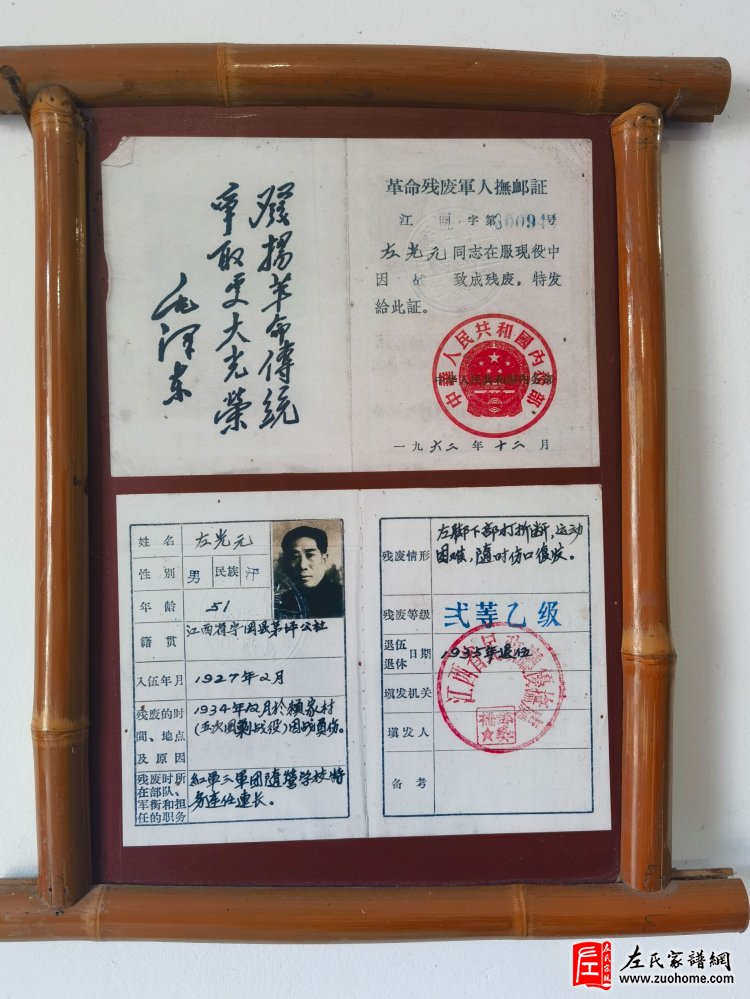 發揚革命傳統
爭取更大光榮
毛澤东
革命残废軍人撫邮証
江西字第 号
左光元同志在服現役中
因战致成残废，特发
給此証。
中華人民共和國內務部
中华人民共和国内务部
一九六二年十二月
姓名 左光元
性别 男 民族 汗
年龄 51
籍貫 江西省宁冈县茅坪公社
入伍年月 1927年2月
残废的时 1934年12月於賴家村
間、地点 (五次囲剿战役)因战負伤。
及原因
残废时所 紅軍三軍团随营学校特
在部队、 务连任連长。
军衔和担
任的职务
残废情形 左脚下部打折断，运动
困难，随时伤口復发。
残废等級 弍等乙級
退伍 日期 1935年退伍
退休
填发机关
填发人
备考
江西省民政
左氏宗親
左氏家譜網
www.zuohome.com